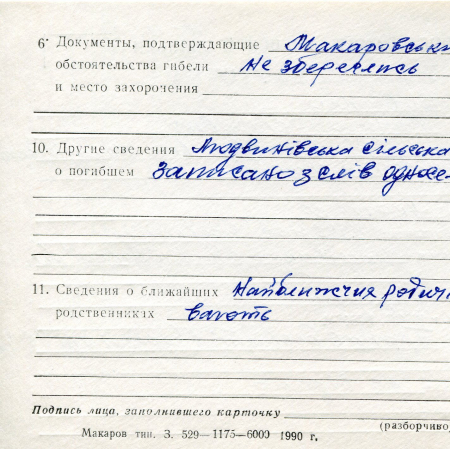 6. Документы, подтверждающие Макаровськ
обстоятельства гибели Не збереглись
и место захоронения
10. Другие сведения Людвинівська сільська
о погибшем Записано з слів односе
11. Сведения о ближайших Найближчих родич
родственниках
Подпись лица, заполнившего карточку
(разборчиво)
Макаров тип. З. 529—1175—6000 1990 г.